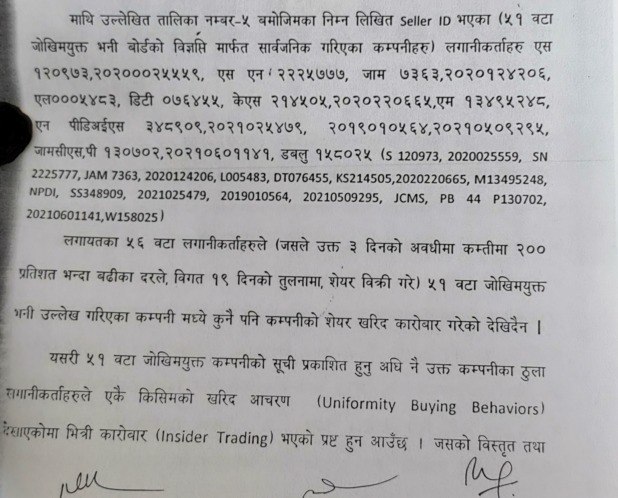 माथि उल्लेखित तालिका नम्बर-५ बमोजिमका निम्न लिखित Seller ID भएका (५१ वटा
जोखिमयुक्त भनी बोर्डको विज्ञप्ति मार्फत सार्वजनिक गरिएका कम्पनीहरु) लगानीकर्ताहरु एस
१२०९७३,२०२०००२५५५९, एस एन २२२५७७७, जाम ७३६३,२०२०१२४२०६,
एल०००५४८३, डिटी ०७६४५५, केएस २१४५०५,२०२०२२०६६५,एम १३४९५२४८,
एन पीडिआईएस ३४८९०९,२०२१०२५४७९, २०१९०१०५६४,२०२१०५०९२९५,
जामसीएस,पी १३०७०२,२०२१०६०११४१, डबलु १५८०२५ (S 120973, 2020025559, SN
2225777, JAM 7363, 2020124206, L005483, DT076455, KS214505,2020220665, M13495248,
NPDI, SS348909, 2021025479, 2019010564, 20210509295, JCMS, PB 44 P130702,
20210601141,W158025)
लगायतका ५६ वटा लगानीकर्ताहरुले (जसले उक्त ३ दिनको अवधीमा कम्तीमा २००
प्रतिशत भन्दा बढीका दरले, विगत १९ दिनको तुलनामा, शेयर विक्री गरे) ५१ वटा जोखिमयुक्त
भनी उल्लेख गरिएका कम्पनी मध्ये कुनै पनि कम्पनीको शेयर खरिद कारोबार गरेको देखिदैन |
यसरी ५१ वटा जोखिमयुक्त कम्पनीको सूची प्रकाशित हुनु अघि नै उक्त कम्पनीका ठुला
लगानीकर्ताहरुले एकै किसिमको खरिद आचरण (Uniformity Buying Behaviors)
देखाएकोमा भित्री कारोबार (Insider Trading) भएको प्रष्ट हुन आउँछ । जसको विस्तृत तथा